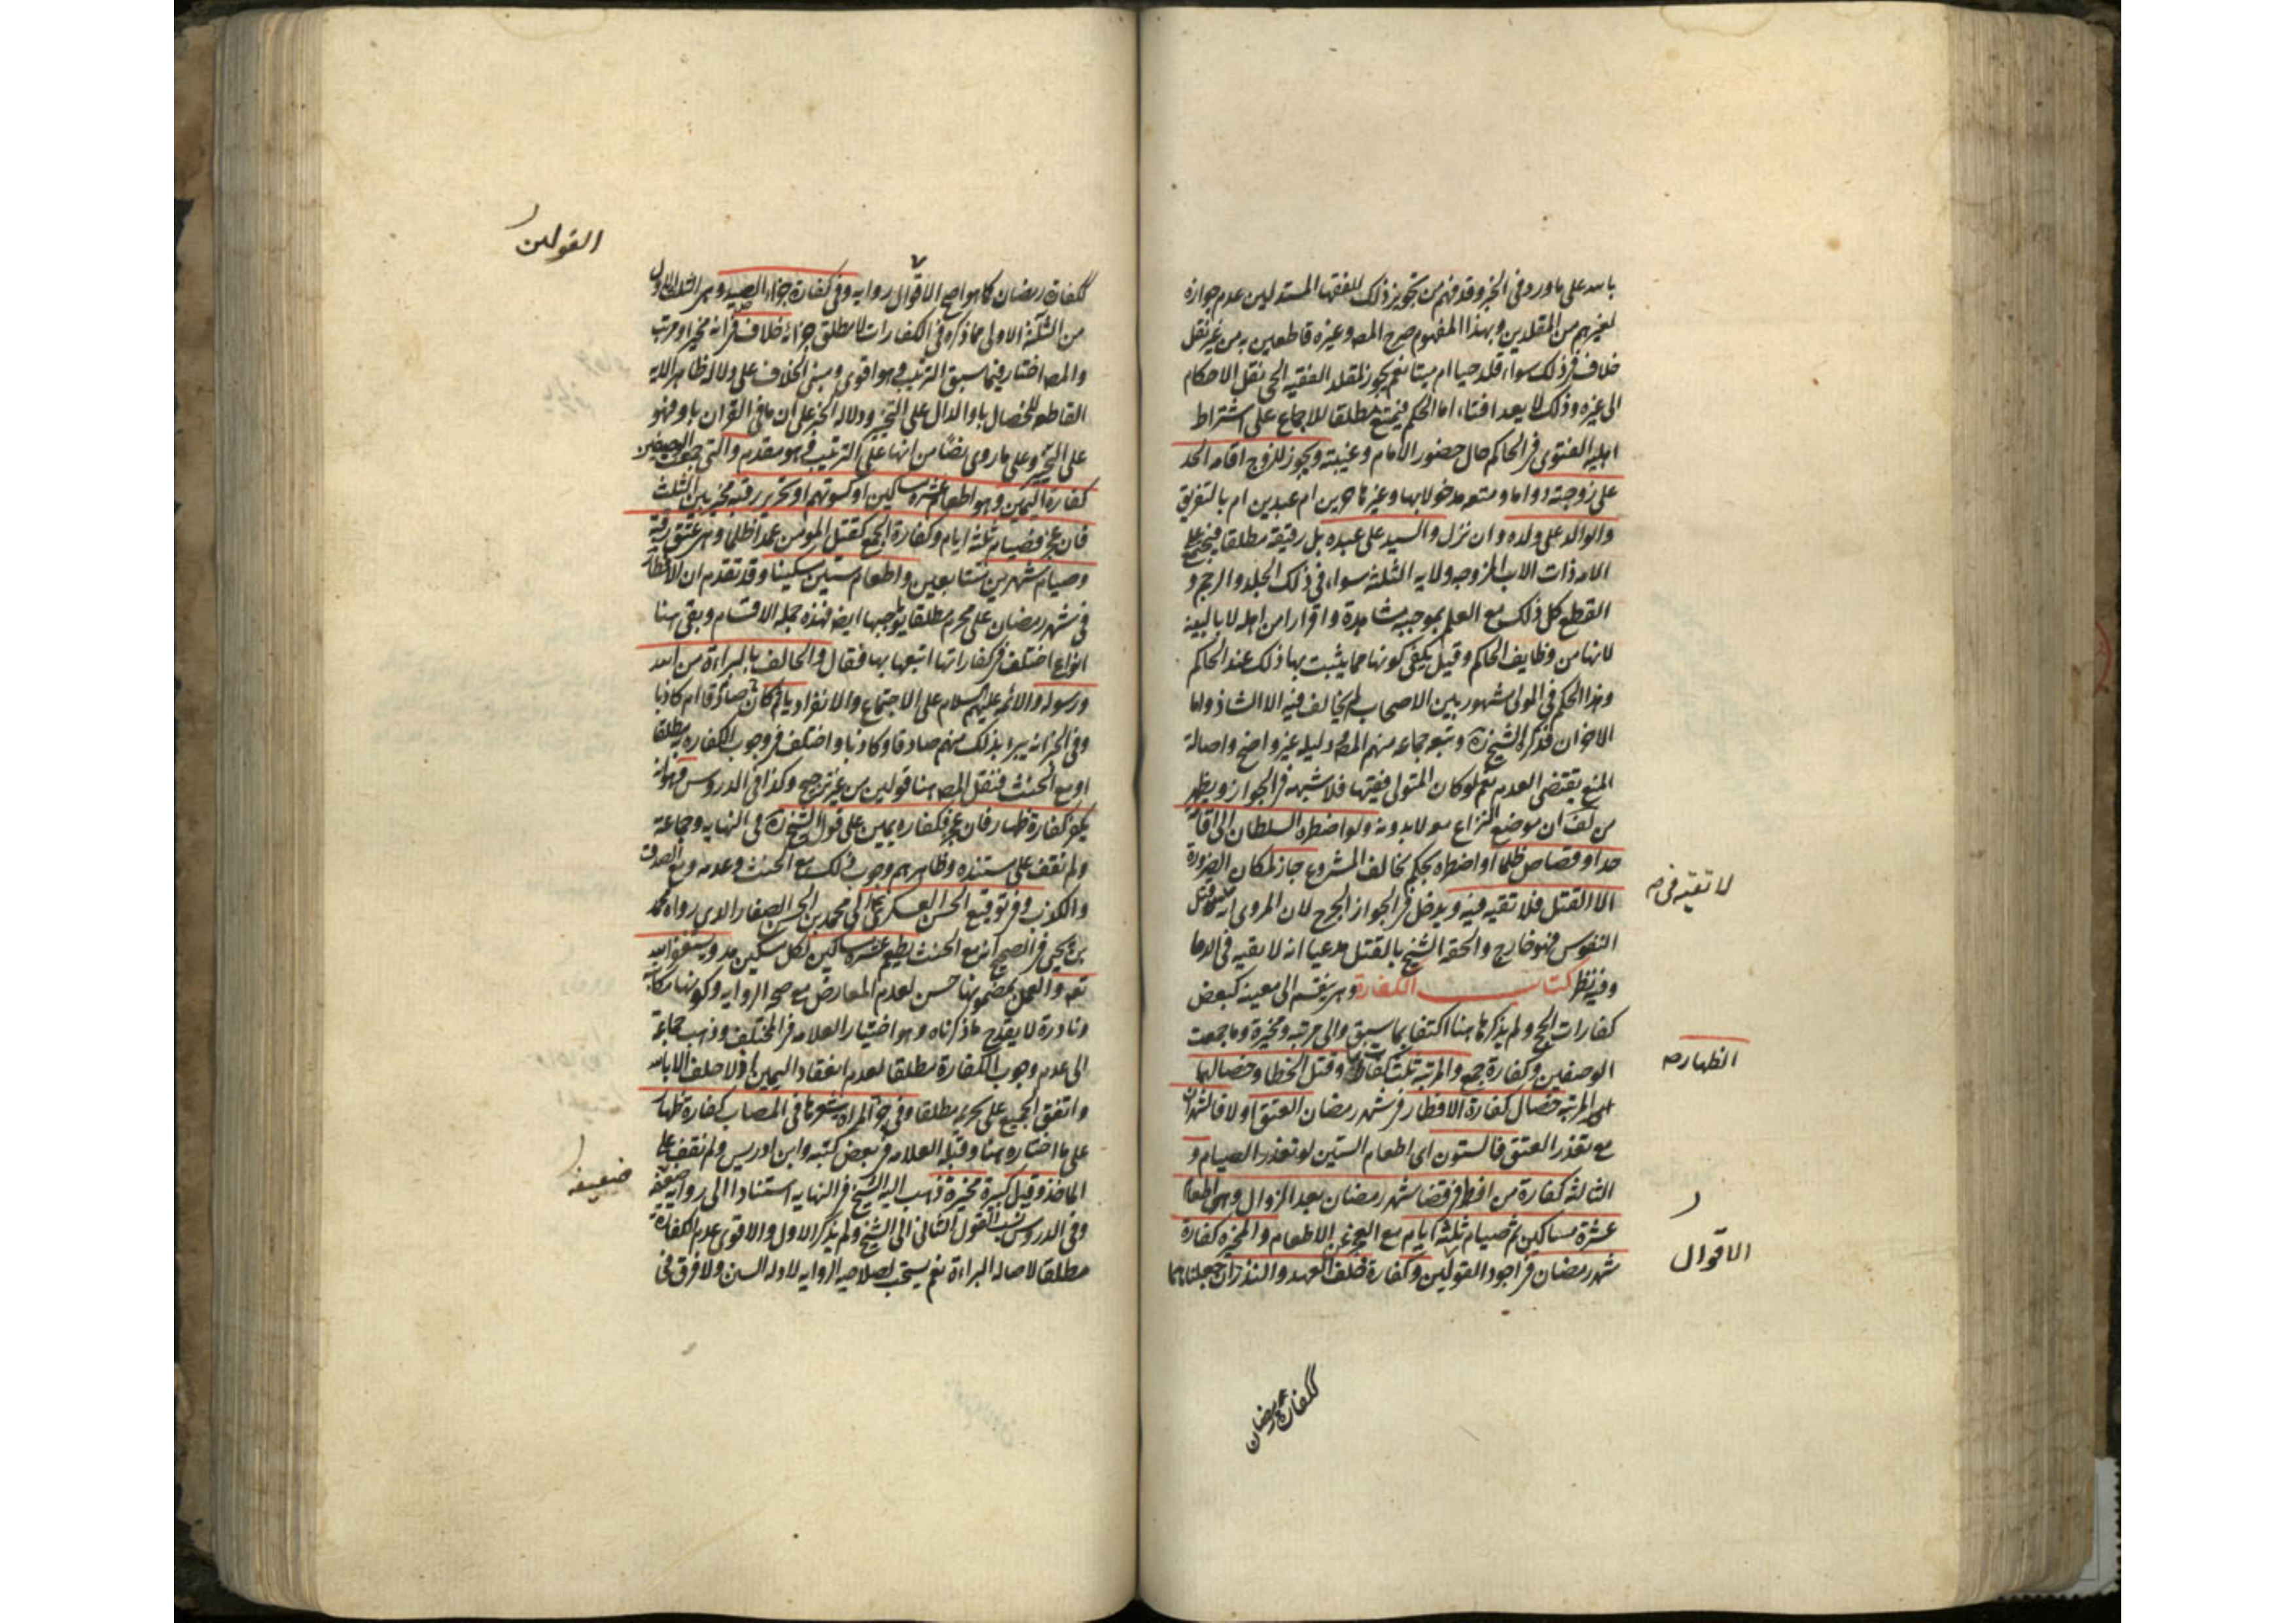 باسه على ما ورد في الخبر وقد فهم من تجويز ذلك للفقهاء المستدلين عدم جوازه
لغيرهم من المقلدين وبهذا المفهوم صرح المصه وغيره قاطعين به من غير نقل
خلاف في ذلك سواء قلد حيا ام ميتا نعم يجوز لمقلد الفقيه الحي نقل الاحكام
الى غيره وذلك لا يعد افتاء اما الحكم فيمتنع مطلقا للاجماع على اشتراط
اهلية الفتوى في الحاكم حال حضور الامام وغيبته ويجوز للزوج اقامه الحد
على زوجته دواما ومتعه مدخولا بها وغيرها حرين ام عبدين ام بالتفريق
والوالد على ولده وان نزل والسيد على عبده بل رقيقه مطلقا فيجتمع على
الامه ذات الاب المزوجه ولايه الثلثة سواء في ذلك الجلد والرجم و
القطع كل ذلك مع العلم بموجبه مشاهدة واقرارا من اهله لا بالبينه
لانها من وظايف الحاكم وقيل يكفي كونها مما يثبت بها ذلك عند الحاكم
وهذا الحكم في المولى مشهور بين الاصحاب لم يخالف فيه الا الشاذ واما
الاخران فذكره الشيخ ره وتبعه جماعه منهم المصه ودليله غير واضح واصالة
المنع يقتضي العدم نعم لو كان المتولى فقيها فلا شبهه في الجواز ويظهر
من لف ان موضع النزاع معه لا بدونه ولو اضطره السلطان الى اقامة
حد او قصاص ظلما او اضطره لحكم مخالف المشروع جاز لمكان الضرورة
الا القتل فلا تقيه فيه ويدخل في الجواز الجرح لان المروى
لا تقيه في
النفوس فهو خارج والحقه الشيخ بالقتل مدعيا انه لا تقيه في الدما
وفيه نظر كتاب الكفارة وهي ينقسم الى معينه كبعض
كفارات الحج ولم يذكرها هنا اكتفا بما سبق والى مرتبه ومخيرة وما جمعت
الوصفين وكفارة جمع والمرتبة ثلث كفارات وقتل الخطا وخصالهما
الظهار
اى المرتبه خصال كفارة الافطار في شهر رمضان العتق اولا فالشهران
مع تعذر العتق فالستون اى اطعام الستين لو تعذر الصيام و
الثالثه كفارة من افطر في قضا شهر رمضان بعد الزوال وهي اطعام
عشرة مساكين ثم صيام ثلثه ايام مع العجز عن الاطعام والمخيره كفارة
الاقوال
شهر رمضان في اجود القولين وكفارة خلف العهد والنذر ان جعلناهما
ككفارة رمضان
القولين
ككفارة رمضان كما هو اصح الاقوال روايه وفي كفارة جزاء الصيد وهي الثلث الاول
من الثلثة الاولى مما ذكره في الكفارات لا مطلق جزائه خلاف في انه مخير او مرتب
والمصه اختار فيما سبق الترتيب وهو اقوى ومبنى الخلاف على دلاله ظاهر الايه
القاطعه للخصال باو الدال على التخير ودلاله الخبر على ان ما في القران باو فهو
على التخير وعلى ما روى نصا من انها على الترتيب وهو مقدم والتي جمعت الوصفين
كفارة اليمين وهو اطعام عشرة مساكين او كسوتهم او تحرير رقبة مخير بين الثلث
فان عجز فصيام ثلثه ايام وكفارة الجمع كقتل المومن عمدا ظلما وهي عتق رقبة
وصيام شهرين متتابعين واطعام ستين مسكينا وقد تقدم ان الافطار
في شهر رمضان على محرم مطلقا يوجبها ايضا فهذه جملة الاقسام وبقي هنا
انواع اختلف في كفاراتها اتبعها بها فقال والحالف بالبراءة من الله
ورسوله والائمه عليهم السلام على الاجتماع والانفراد ياثم كان صادقا ام كاذبا
وفي الخبر انه يبرا بذلك منهم صادقا وكاذبا واختلف في وجوب الكفارة مطلقا
او مع الحنث فنقل المصه هنا قولين من غير ترجيح وكذا في الدروس وهو انه
يكفر كفارة ظهار فان عجز فكفارة يمين على قول الشيخ ره في النهايه وجماعة
ولم نقف على مستنده وظاهرهم وجوب ذلك مع الحنث وعدمه ومع الصدق
والكذب وفي توقيع الحسن العسكري الى محمد بن الحسن الصفار الذى رواه محمد
بن يحيى في الصحيح انه مع الحنث يطعم عشرة مساكين لكل مسكين مد ويستغفر الله
تعه والعمل بمضمونها حسن لعدم المعارض مع صحه الروايه وكونها مكاتبة
ونادرة لا يقدح ما ذكرناه وهو اختيار العلامه في المختلف وذهب جماعة
الى عدم وجوب الكفارة مطلقا لعدم انعقاد اليمين اذ لا حلف الا بالله
واتفق الجميع على تحريمه مطلقا وفي جز المراه شعرها في المصاب كفارة ظهار
على ما اختاره هنا وقبله العلامه في بعض كتبه وابن ادريس ولم نقف على
الماخذ وقيل كبيرة مخيرة ذهب اليه الشيخ في النهايه استنادا الى روايه ضعيفه
ضعيفه
وفي الدروس نسب القول الثاني الى الشيخ ولم يذكر الاول والاقوى عدم الكفارة
مطلقا لاصاله البراءة نعم يستحب لصلاحيه الروايه لادلة السنن ولا فرق في